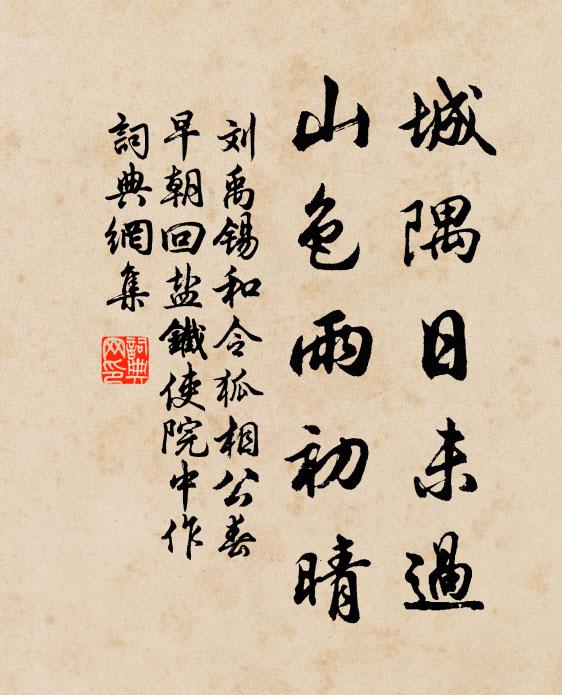 城隅日未過
山色雨初晴
刘禹锡和令狐相公春
早朝回盐鐵使院中作
詞典網集
詞典
网印